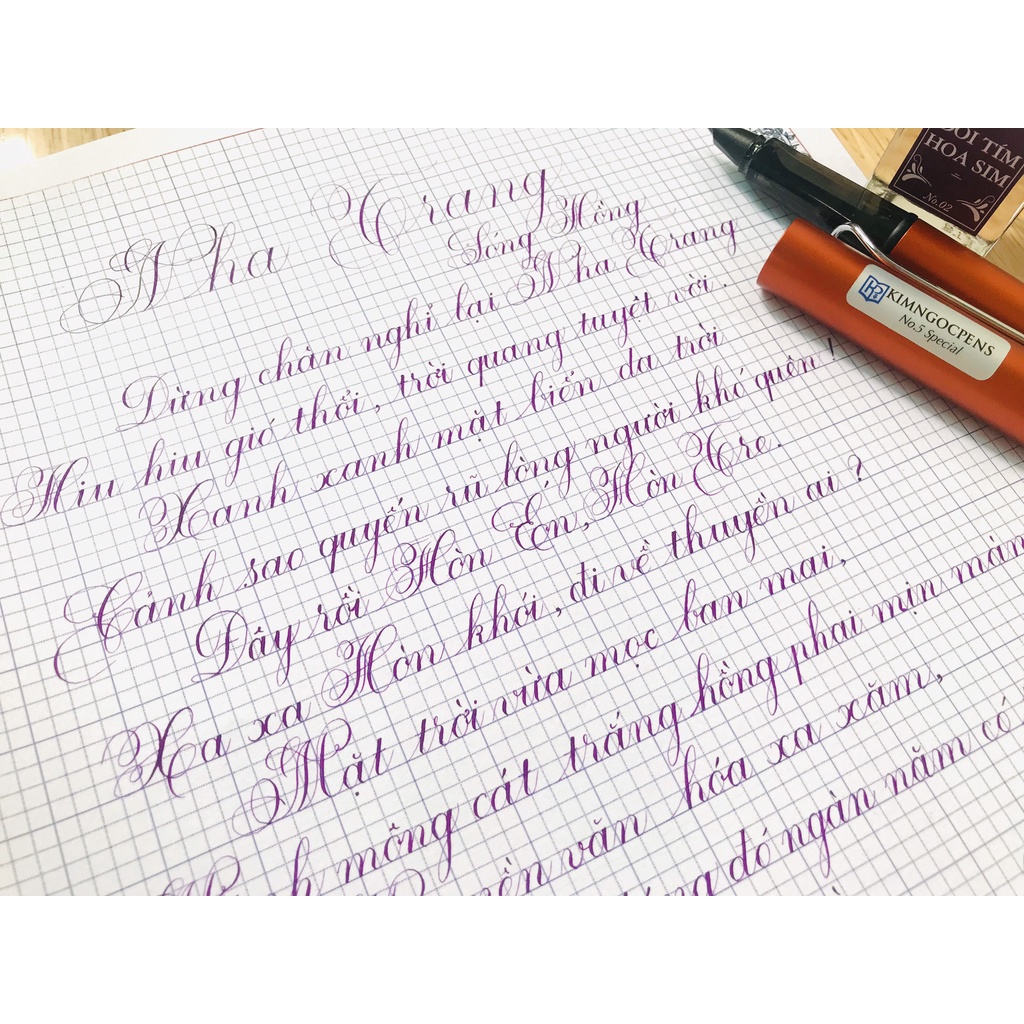 Nha Trang
Sóng Hồng
Dừng chân nghỉ lại Nha Trang
Hiu hiu gió thổi, trời quang tuyệt vời.
Xanh xanh mặt biển da trời
Cảnh sao quyến rũ lòng người khó quên!
Đây rồi Hòn Én, Hòn Tre.
Xa xa Hòn khói, đi về thuyền ai?
Mặt trời vừa mọc ban mai,
mông cát trắng hồng phai mịn màn
văn hóa xa xăm,
đó ngàn năm có
ĐỒI TÍM
HOA SIM
No.02
KIMNGOCPENS
No.5 Special